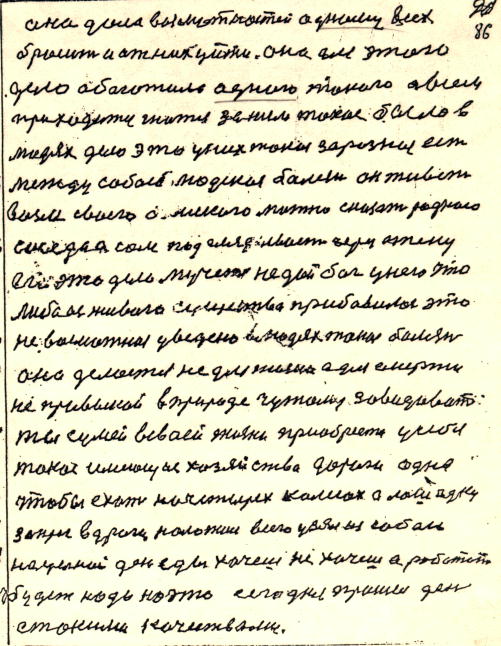 86
она дала возможностей одному всех
бросит и от них уйти. она для этого
дело обогатила одного такого а всем
приходити гнатся за ним такое было в
людях дело это у них такая заразная ест
между собою людская болезн он живет
возли своего близкого можно сказат родного
соседа а сам подглядывает через стену
его это дело мучает не дай бог у него это
либо от живого существа прибавилос это
не возможная уведено в людях такая болезн
она делается не для жизни а для смерти
не привыкай в природе чужому завидоват
ты сумей в своей жизни приобрести у себя
такое имеющее хозяйства дорога одна
чтобы ехат на четырех колесах а лошадку
запряг в дрогу положил всего узял из собою
на целной ден еды хочеш не хочеш а работат
будеш надо на это сегодня пришел ден
с такими качествами.